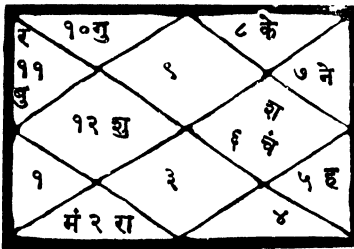 र १० गु ८ के
११ ९ ७ ने
बु
१२ शु श
६ चं
१ ३ ५ ह
मं २ रा ४